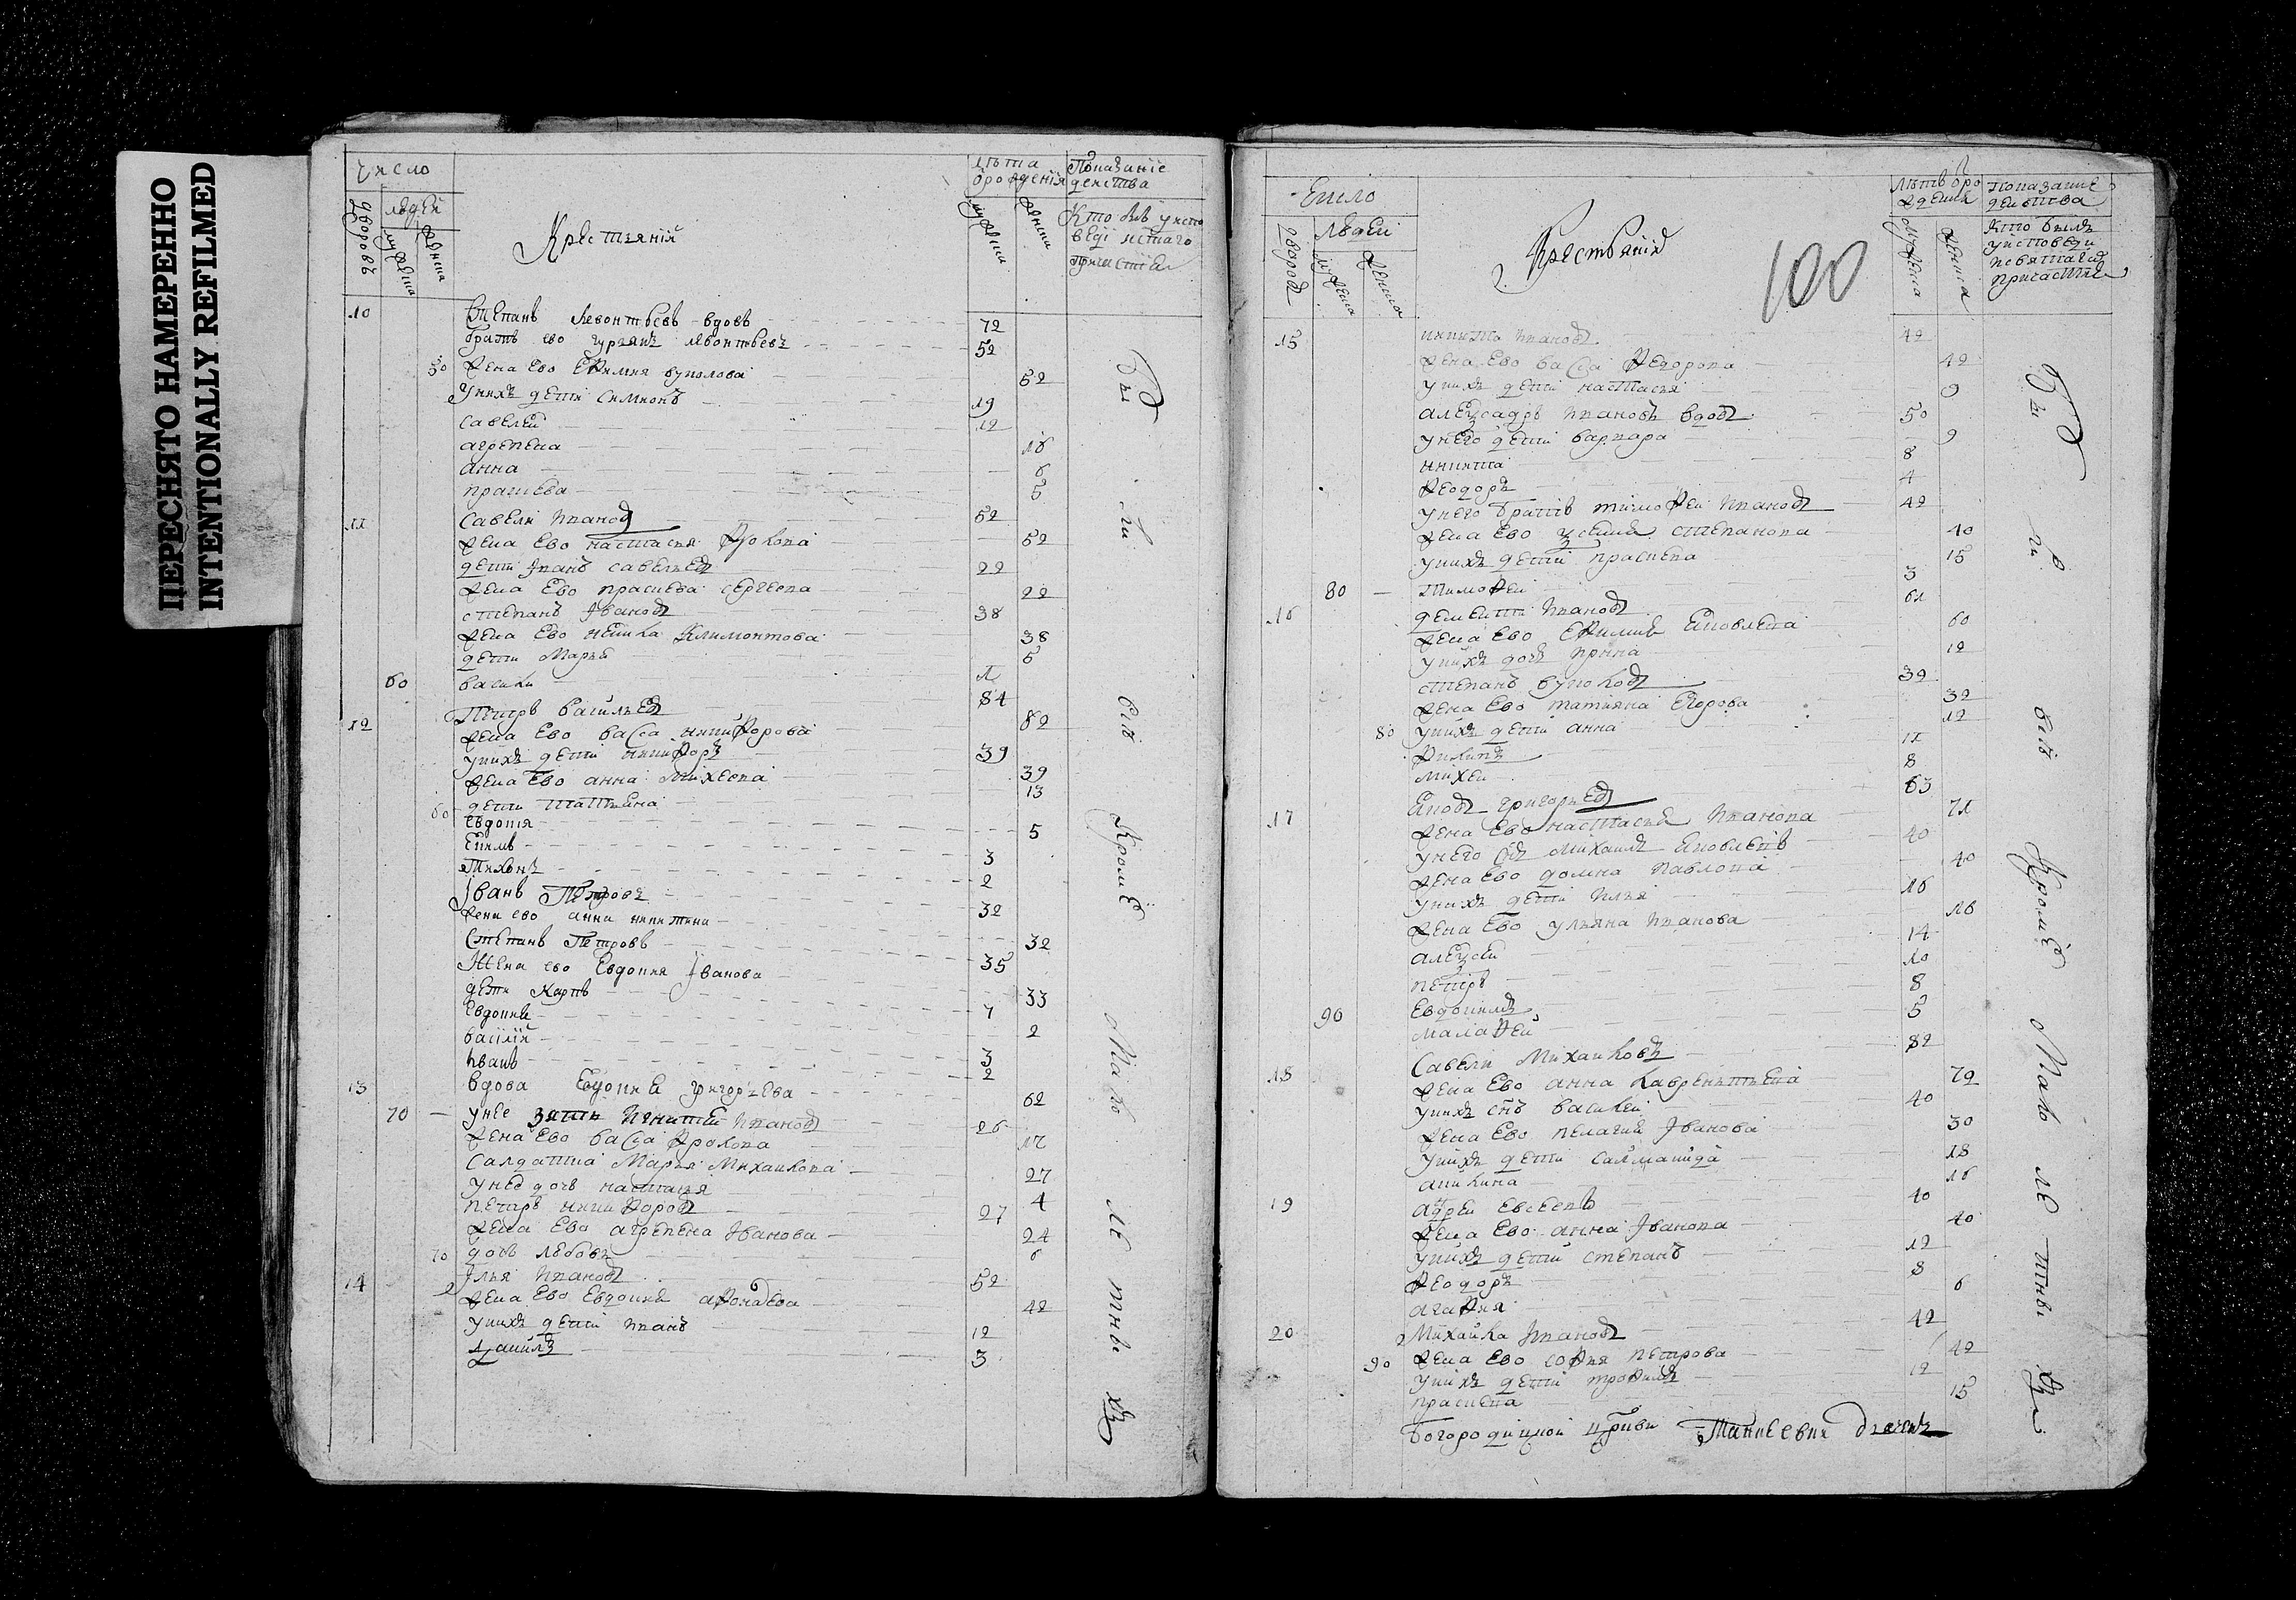 ПЕРЕСНЯТО НАМЕРЕННО
INTENTIONALLY REFILMED
Число
дворовъ
людей
мужеска
женска
Крестьяніи
лѣта
ѿрожденія
мужска
женска
Показаніе
действа
Кто былъ у испо
веди и стаго
причастия
10
Степанъ Левонтьевъ вдовъ 72
братъ ево гурьянъ левонтьевъ 52
50 жена Ево Ефимия вуколова 52
у нихъ дети Симионъ 19
Савелей 12
агрепена 16
анна 6
прасковя 5
11 Савели Ивановъ 52
жена Ево настасья Фролова 52
дети Иванъ савельевъ 22
жена Ево прасковя сергеева 22
степанъ Ивановъ 38
жена Ево Климонтова 38
дети Марья 5
60 васили 1
12 Петръ васильевъ 84
жена Ево васса никифорова 82
у нихъ дети никифоръ 39
жена Ево анна Михеева 39
60 дети татьяна 13
Евдотя 5
Екимъ 3
Тихонъ 2
Иванъ Петровъ 32
жена ево анна никитина 32
Степанъ Петровъ 35
Жена ево Евдокия Иванова 33
дети Карпъ 7
Евдокия 2
васілій 3
Иванъ 2
13 вдова Евдокия григорьева 62
70 у нее зять Игнатей Ивановъ 26
жена Ево васса Фролова 17
Салдатка Марья Михаилова 27
у нее дочь настася 4
петръ никифоровъ 27
жена Ева агрепена Иванова 24
70 дочь любовь 6
14 Илья Ивановъ 52
жена Ево Евдокия афонасева 42
у нихъ дети иванъ 12
Данилъ 3
Были
всѣ
Кромѣ
Мало
летныхъ
Число
дворовъ
людей
мужеска
женска
Крестьяніи
100
лѣтъ ѿро
ждения
мужеска
женска
показание
действа
Кто былъ
у исповеди
и святаго
причастия
15 никита Ивановъ 42
жена Ево васса Федорова 42
у нихъ дети настасья 9
александръ Ивановъ вдовъ 50
у него дети варвара 9
никита 8
Феодоръ 4
у него братъ тимофеи Ивановъ 42
жена Ево Степанова 40
у нихъ дети прасковя 15
80 Тимофеи 3
16 дементи Ивановъ 61
жена Ево Ефимия Яковлева 60
у нихъ дочь Ирина 12
степанъ вуколовъ 32
жена Ево татияна Егорова 32
80 у нихъ дети анна 12
Филипъ 11
михей 8
17 Яковъ григорьевъ 63
жена Ево настасья Иванова 71
у него снъ михаилъ Яковлевъ 40
жена Ево домна павлова 40
у нихъ дети Илья 16
жена Ево ульяна Иванова 16
алексеи 14
петръ 10
Евдокимъ 8
90 малафеи 5
18 Савели Михаиловъ 82
жена Ево анна лаврентьева 72
у нихъ снъ василеи 40
жена Ево пелагия Иванова 30
у нихъ дети саламанида 18
акилина 16
19 андреи Евсеевъ 40
жена Ево анна Иванова 40
у нихъ дети степанъ 12
Феодоръ 8
агафия 6
20 Михаила Ивановъ 42
90 жена Ево софия петрова 42
у нихъ дети трофимъ 12
прасковя 15
Были
всѣ
Кромѣ
Мало
летныхъ
Богородицкой цркви дьячекъ